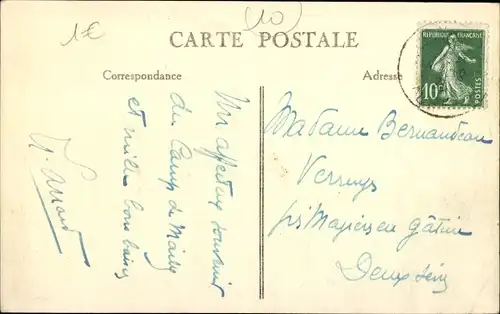 1€
(10)
CARTE POSTALE
Correspondance
Adresse
REPUBLIQUE FRANÇAISE
10c
POSTES
Un affectueux souvenir
du Camp de Mailly
et mille bons baisers
Madame Bernaudeau
Verruyes
par Mazières en Gâtine
Deux Sèv